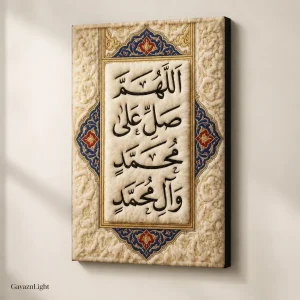 اَللّٰهُمَّ
صَلِّ عَلٰی
مُحَمَّدٍ
وَآلِ مُحَمَّدٍ
GavaznLight